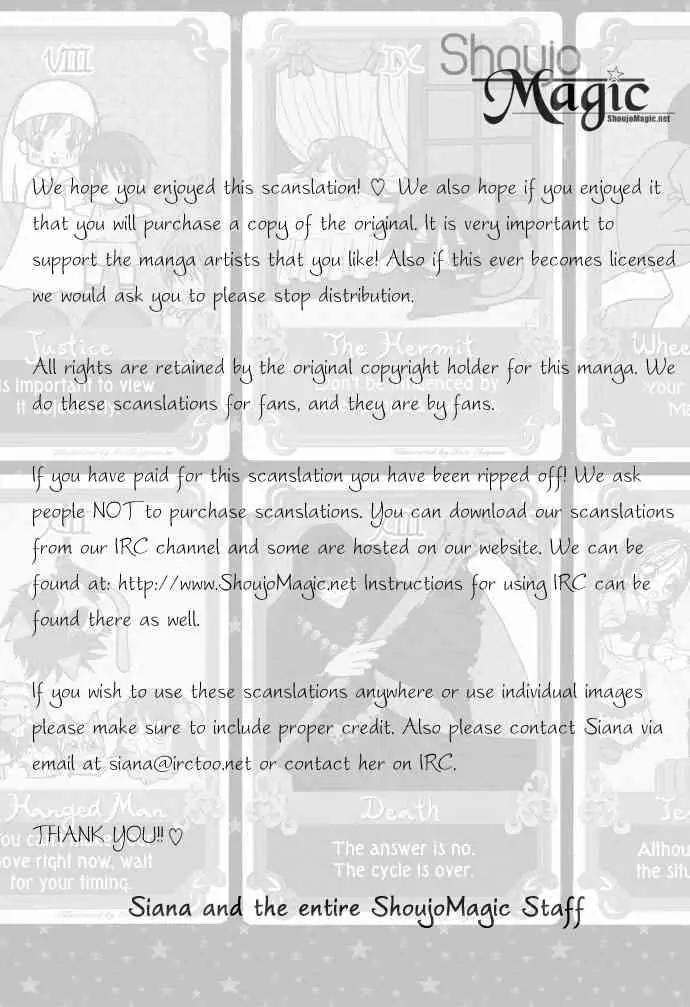 Shoujo
Magic
ShoujoMagic.net
VIII
IX
We hope you enjoyed this scanslation! ♡ We also hope if you enjoyed it
that you will purchase a copy of the original. It is very important to
support the manga artists that you like! Also if this ever becomes licensed
we would ask you to please stop distribution.
Justice
The Hermit
Whee
All rights are retained by the original copyright holder for this manga. We
is important to view
it
Don't be influenced by
Your
do these scanslations for fans, and they are by fans.
If you have paid for this scanslation you have been ripped off! We ask
people NOT to purchase scanslations. You can download our scanslations
from our IRC channel and some are hosted on our website. We can be
found at: http://www.ShoujoMagic.net Instructions for using IRC can be
found there as well.
If you wish to use these scanslations anywhere or use individual images
please make sure to include proper credit. Also please contact Siana via
email at siana@irctoo.net or contact her on IRC.
Hanged Man
Death
Te
THANK YOU!! ♡
ove right now, wait
for your timing.
The answer is no.
The cycle is over.
Althou
the situ
Siana and the entire ShoujoMagic Staff